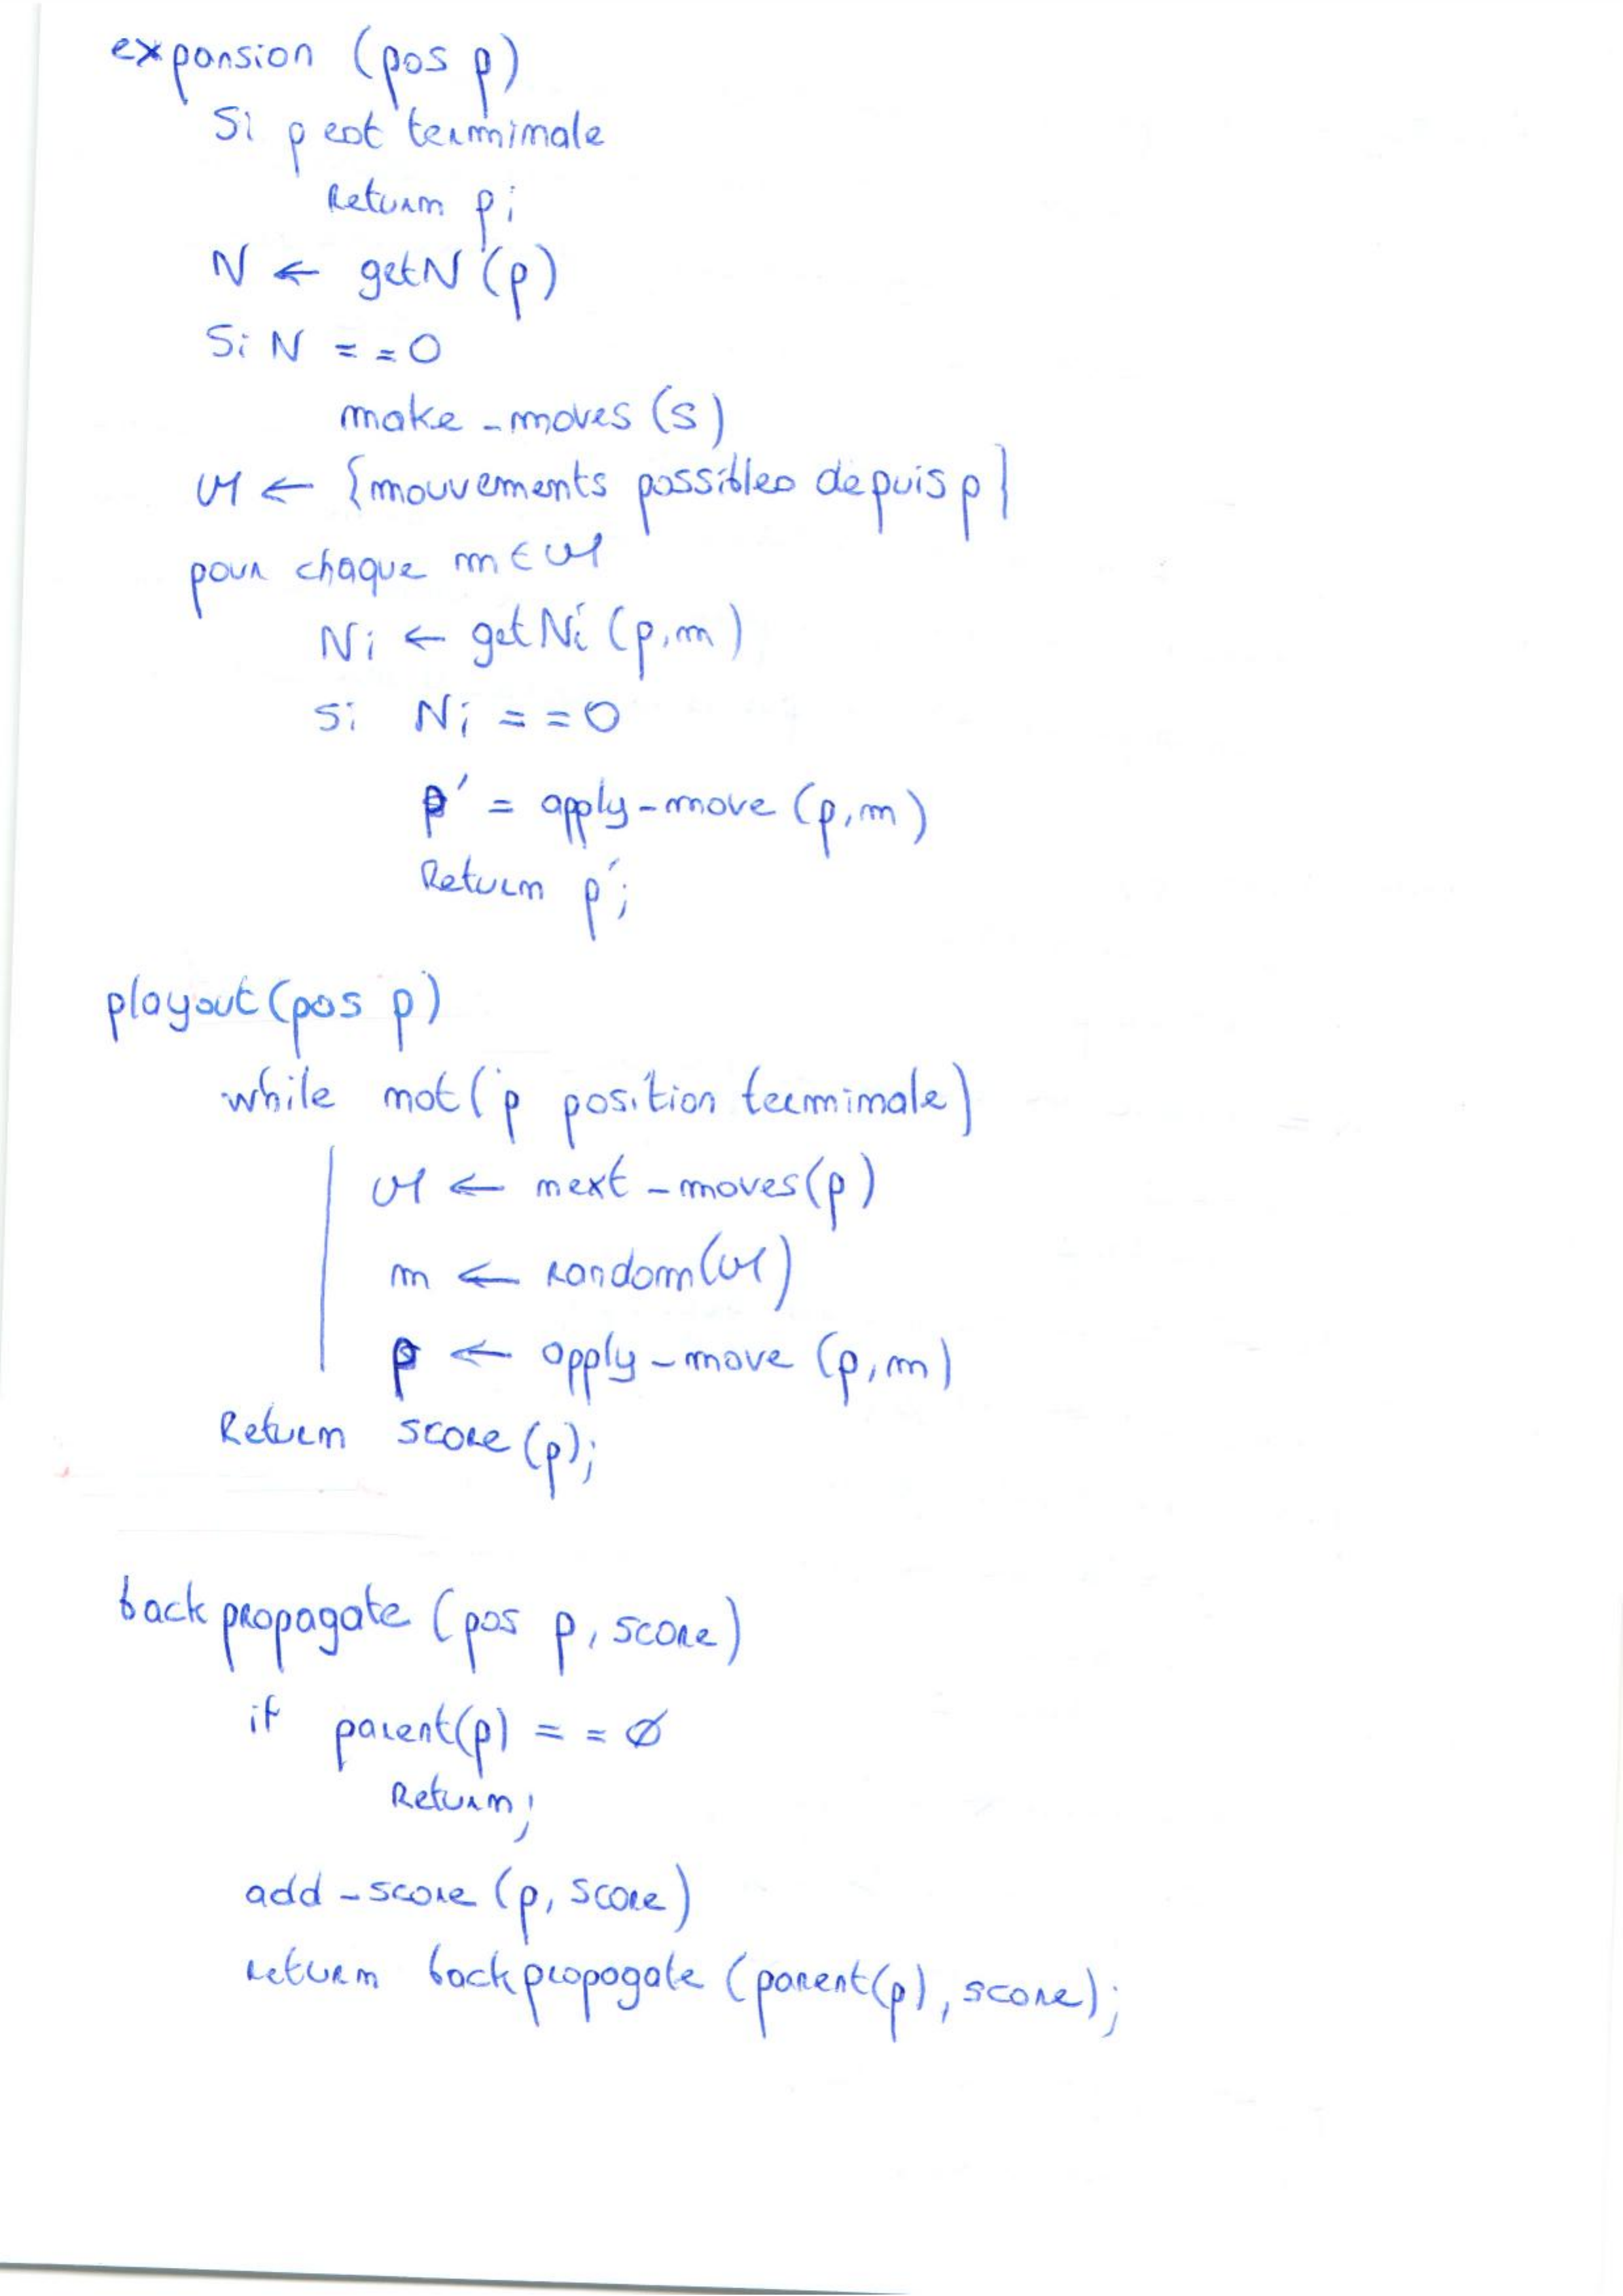 expansion (pos p)
Si p est terminale
Return p;
N ← getN (p)
Si N == 0
make-moves (s)
M ← {mouvements possibles depuis p}
pour chaque m ∈ M
Ni ← getNi (p,m)
si Ni == 0
p' = apply-move (p,m)
Return p';
playout (pos p)
while not (p position terminale)
M ← next-moves (p)
m ← random (M)
p ← apply-move (p,m)
Return score (p);
backpropagate (pos p, score)
if parent(p) == ∅
Return;
add-score (p, score)
return backpropogate (parent(p), score);